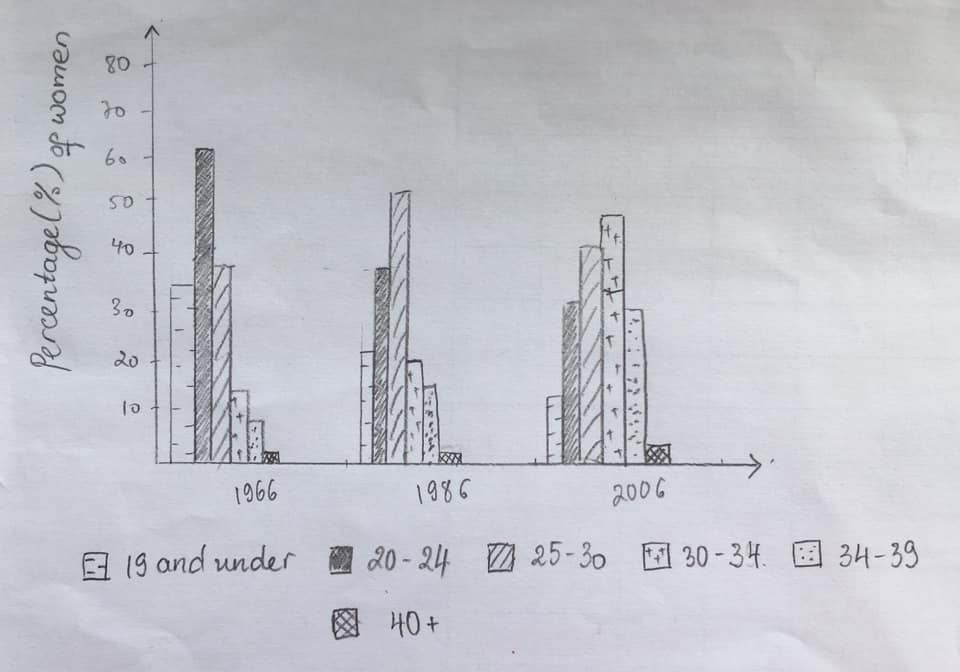 Percentage (%) of women
80
70
60
50
40
30
20
10
1966 1986 2006
19 and under 20-24 25-30 30-34. 34-39
40+